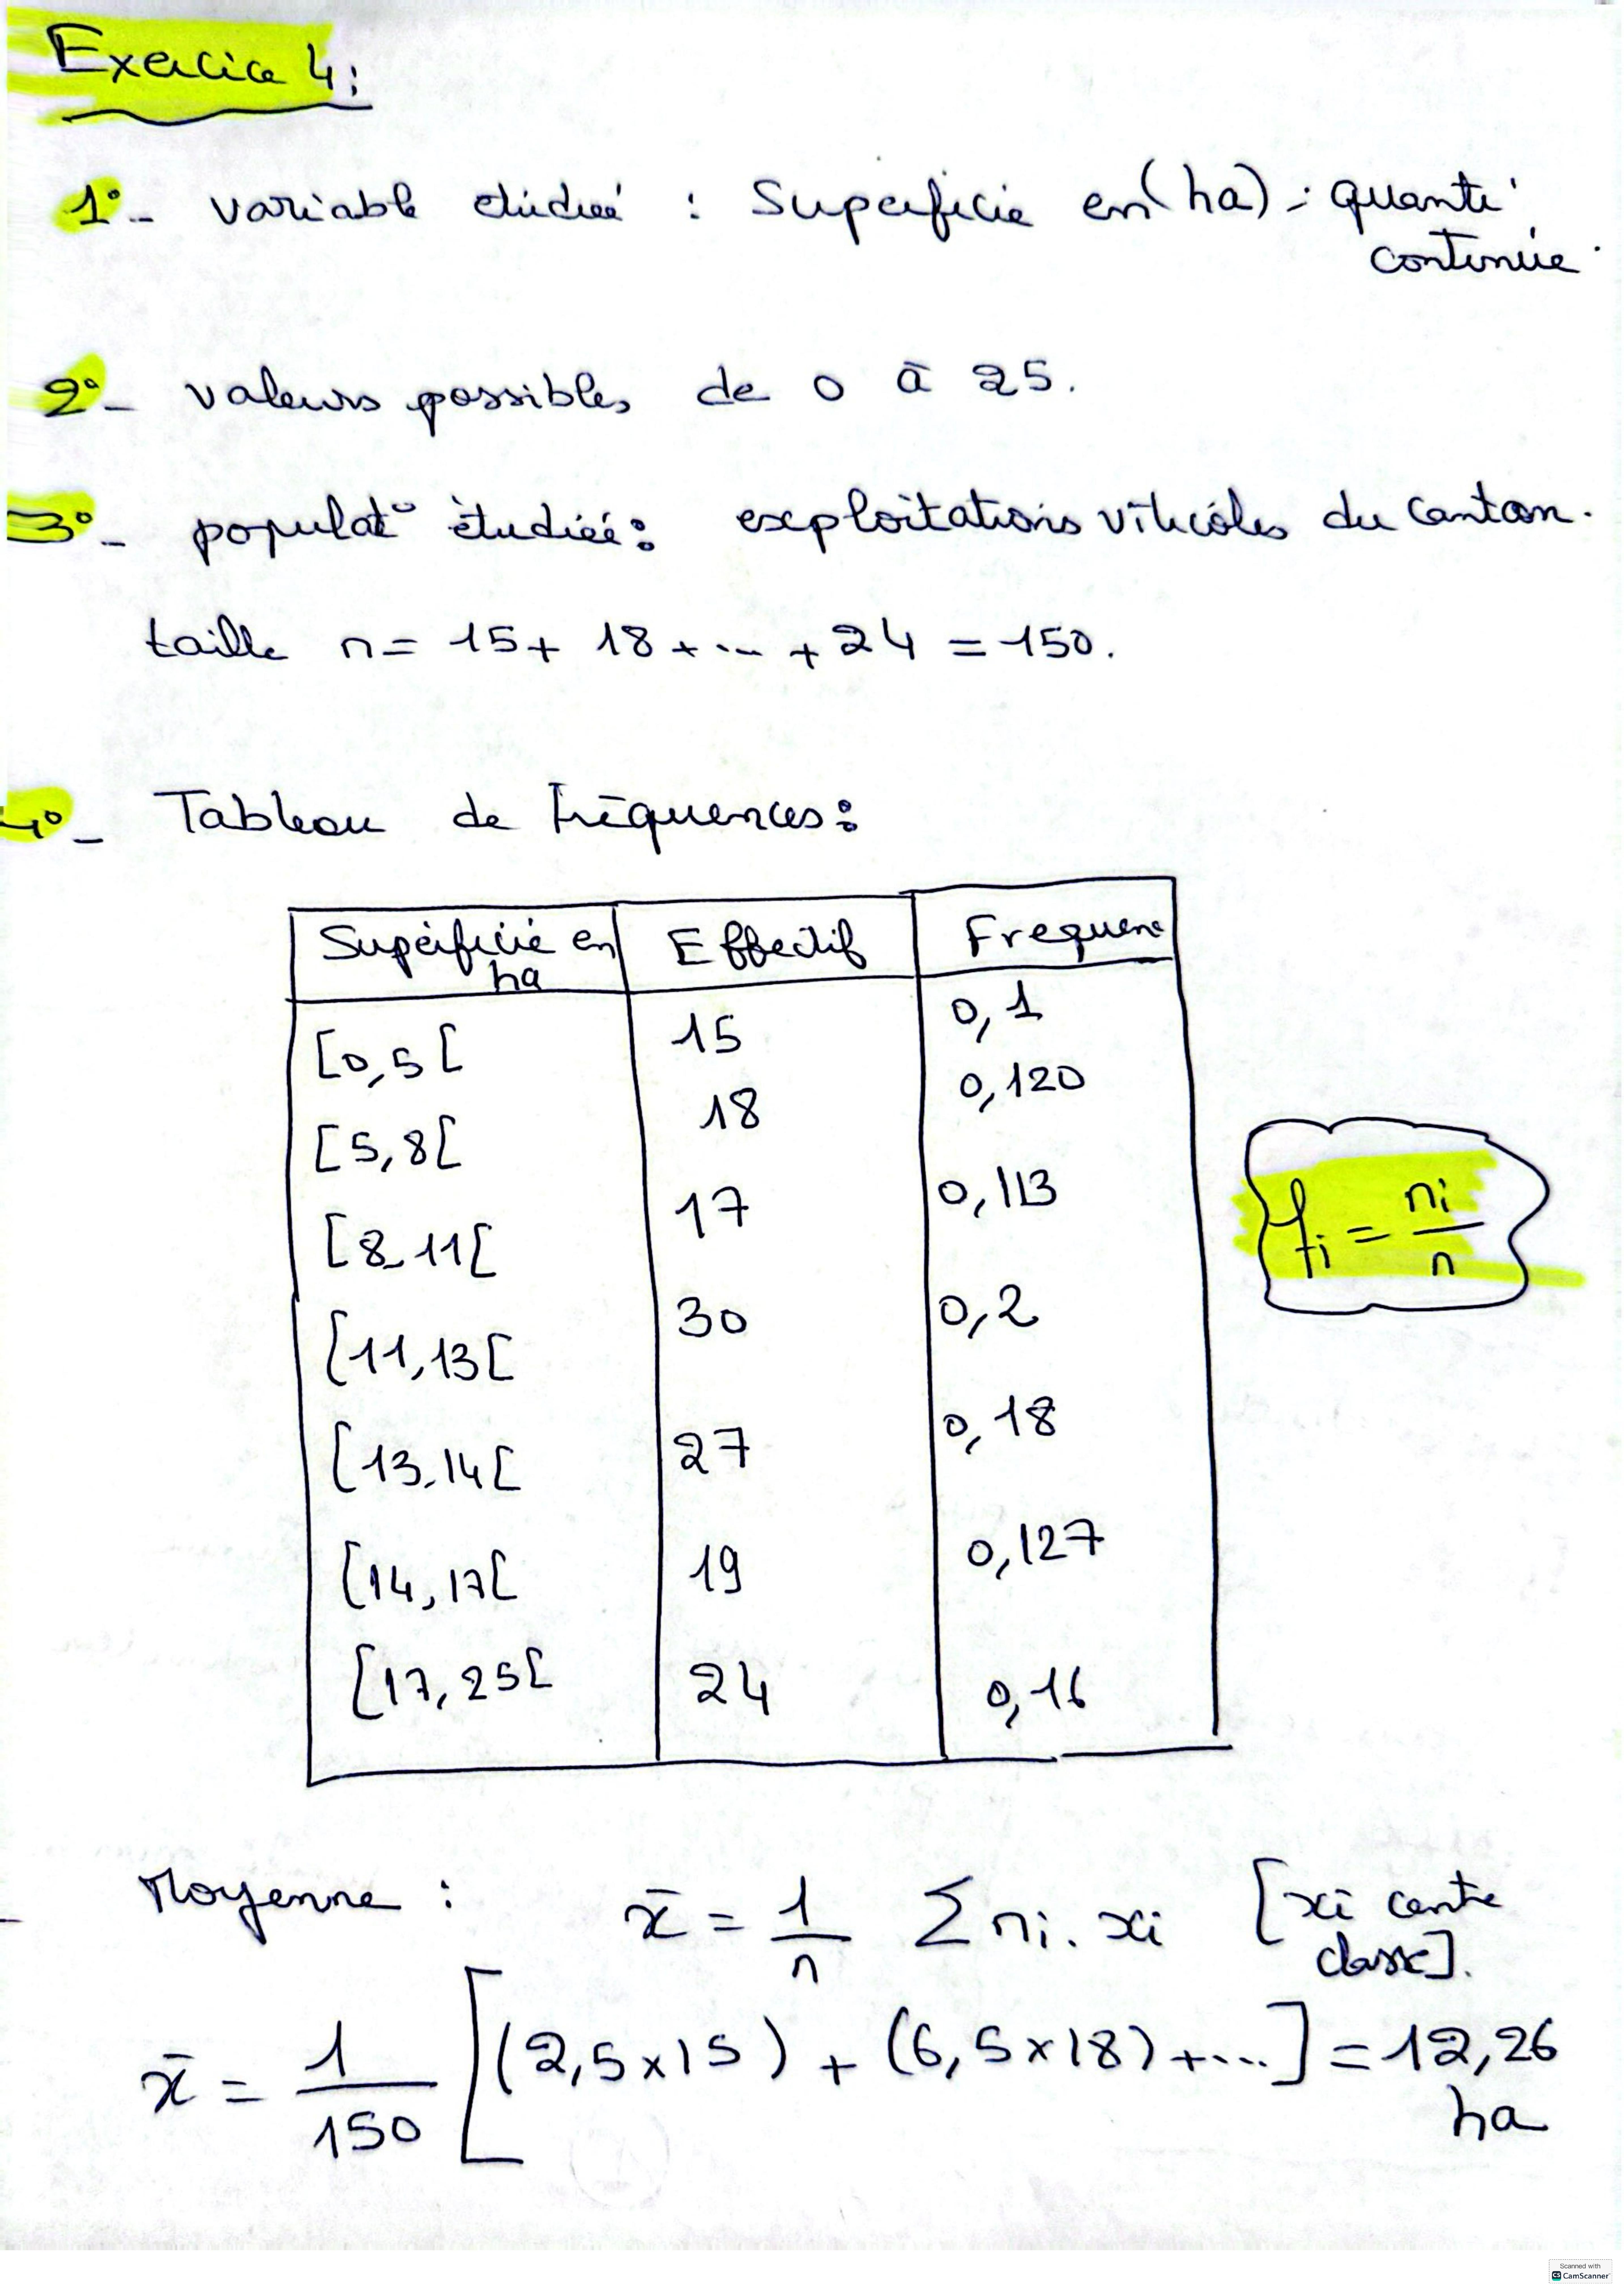 Exercice 4:
1°- variable étudiée : Superficie en (ha) : quanti
continue.
2°- valeurs possibles de 0 à 25.
3°- populat° étudiée: exploitations viticoles du canton.
taille n = 15 + 18 + ... + 24 = 150.
4°- Tableau de fréquences:
Superficie en ha Effectif Frequence
[0,5[ 15 0,1
[5,8[ 18 0,120
[8,11[ 17 0,113
[11,13[ 30 0,2
[13,14[ 27 0,18
[14,17[ 19 0,127
[17,25[ 24 0,16
fi = ni/n
- Moyenne : x̄ = 1/n Σ ni. xi [xi centre
classe].
x̄ = 1/150 [(2,5x15) + (6,5x18)+...] = 12,26
ha
Scanned with
CS CamScanner